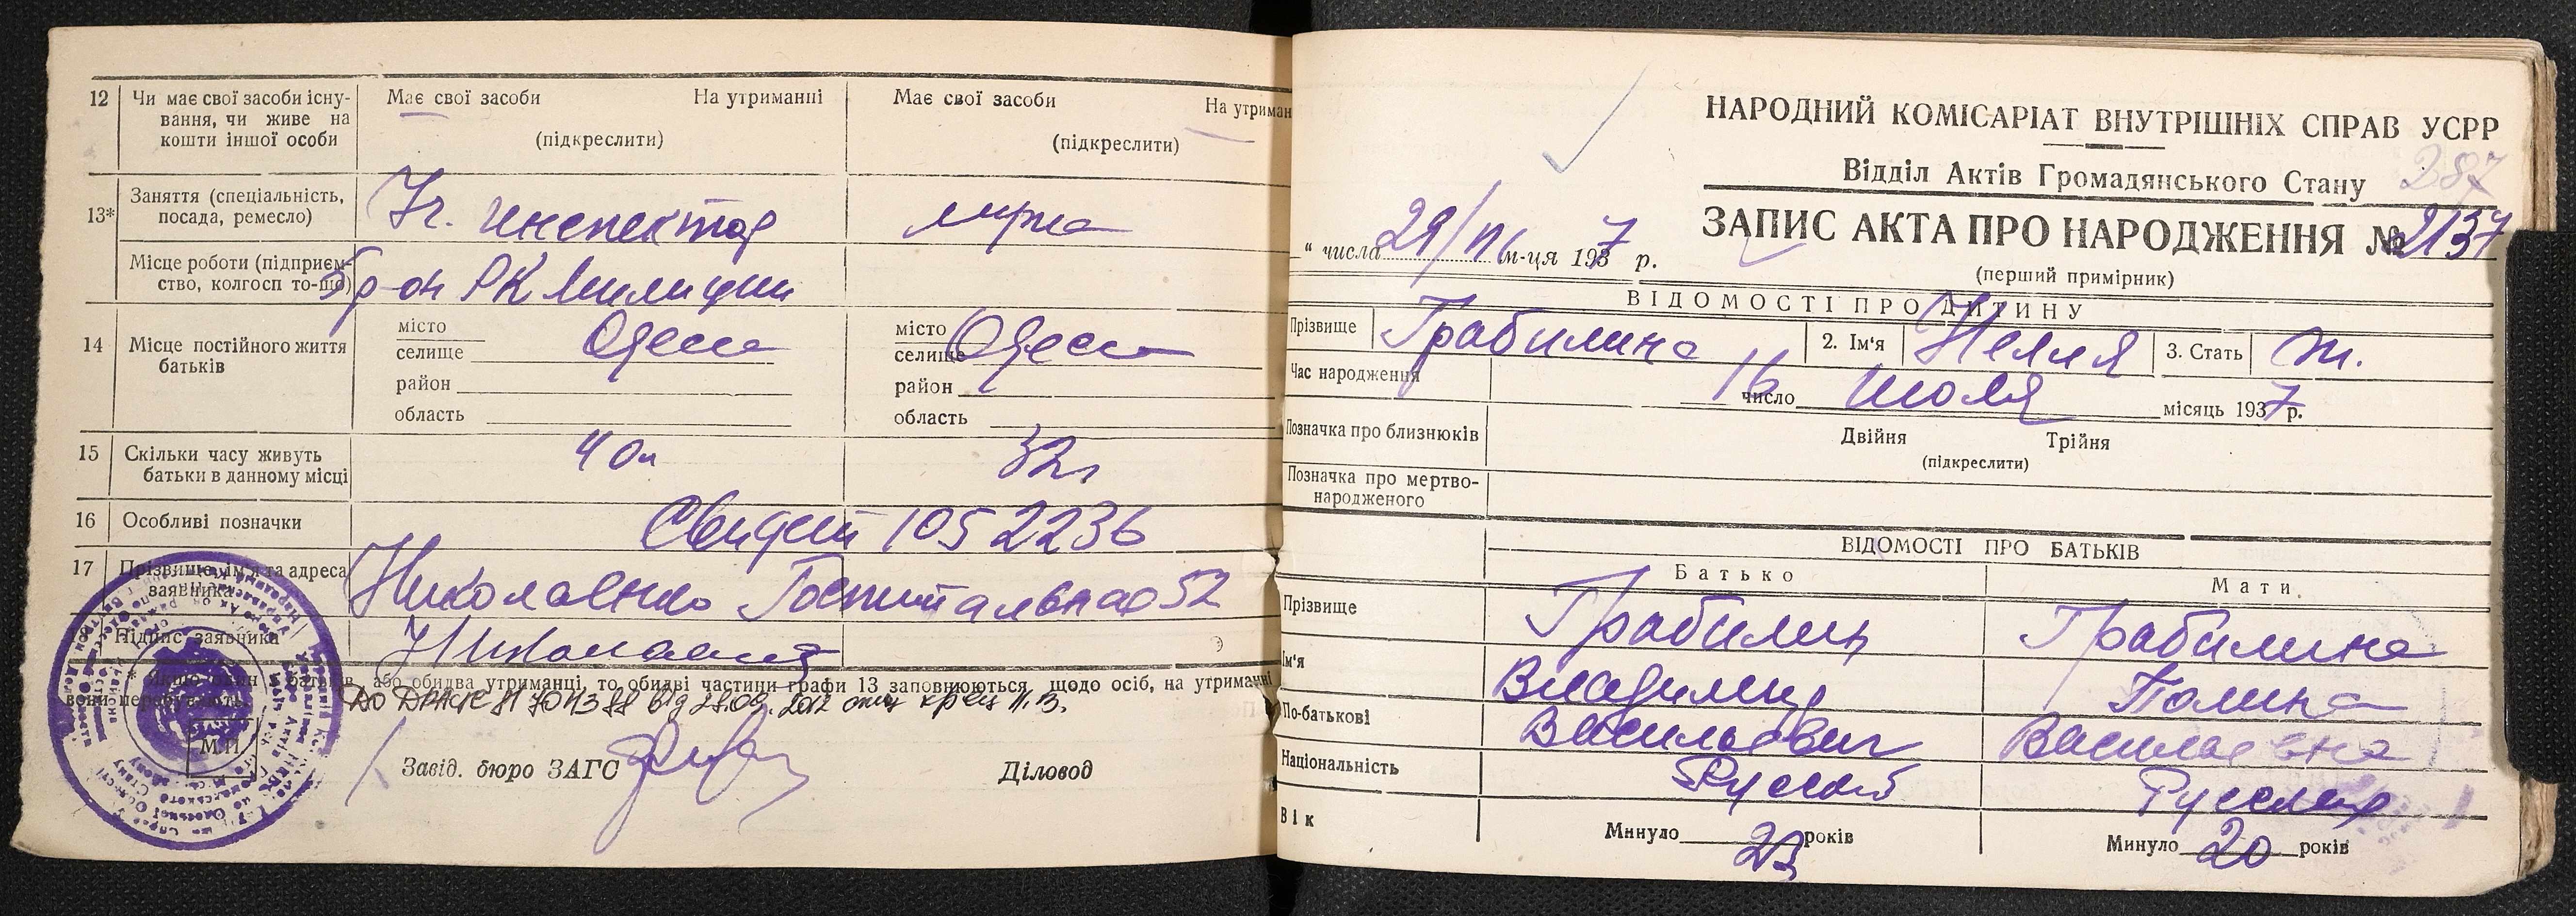 12 Чи має свої засоби існу-
вання, чи живе на
кошти іншої особи
Має свої засоби На утриманні
(підкреслити)
Має свої засоби На утриман
(підкреслити)
13* Заняття (спеціальність,
посада, ремесло)
инспектор
Місце роботи (підприєм-
ство, колгосп то-що)
р-он РК Милиции
14 Місце постійного життя
батьків
місто Одесса
селище
район
область
місто Одесса
селище
район
область
15 Скільки часу живуть
батьки в данному місці
16 Особливі позначки
Свидет 1052236
17 Прізвище, ім'я та адреса
заявника
Николаенко Госпитальная 52
18 Підпис заявника
* Якщо один з батьків, або обидва утриманці, то обидві частини графи 13 заповнюються щодо осіб, на утриманні
вони перебувають.
М.П.
Завід. бюро ЗАГС Діловод
НАРОДНИЙ КОМІСАРІАТ ВНУТРІШНІХ СПРАВ УСРР
287
Відділ Актів Громадянського Стану
ЗАПИС АКТА ПРО НАРОДЖЕННЯ № 2137
" числа 29/VII м-ця 1937 р.
(перший примірник)
ВІДОМОСТІ ПРО ДИТИНУ
Прізвище Грабилина 2. Ім'я Нелля 3. Стать ж.
Час народження 16 число июля місяць 1937 р.
Позначка про близнюків
Двійня Трійня
(підкреслити)
Позначка про мертво-
народженого
ВІДОМОСТІ ПРО БАТЬКІВ
Батько Мати
Прізвище Грабилин Грабилина
Ім'я Владимир Полина
По-батькові Васильевич Васильевна
Національність Русский Русская
Вік Минуло 23 років Минуло 20 років